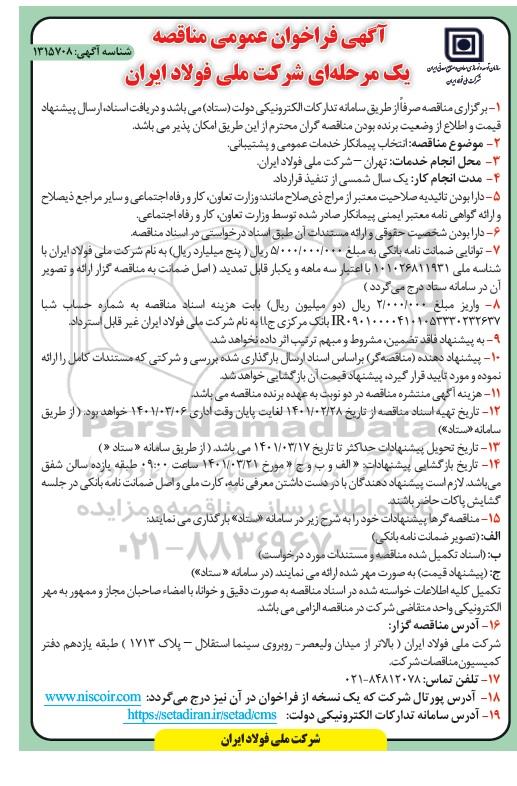 آگهی فراخوان عمومی مناقصه
یک مرحله‌ای شرکت ملی فولاد ایران
شناسه آگهی: ۱۳۱۵۷۰۸
سازمان توسعه و نوسازی معادن و صنایع معدنی ایران
شرکت ملی فولاد ایران
۱- برگزاری مناقصه صرفاً از طریق سامانه تدارکات الکترونیکی دولت (ستاد) می باشد و دریافت اسناد، ارسال پیشنهاد
قیمت و اطلاع از وضعیت برنده بودن مناقصه گران محترم از این طریق امکان پذیر می باشد.
۲- موضوع مناقصه: انتخاب پیمانکار خدمات عمومی و پشتیبانی.
۳- محل انجام خدمات: تهران – شرکت ملی فولاد ایران.
۴- مدت انجام کار: یک سال شمسی از تنفیذ قرارداد.
۵- دارا بودن تائیدیه صلاحیت معتبر از مراج ذی‌صلاح مانند: وزارت تعاون، کار و رفاه اجتماعی و سایر مراجع ذیصلاح
و ارائه گواهی نامه معتبر ایمنی پیمانکار صادر شده توسط وزارت تعاون، کار و رفاه اجتماعی.
۶- دارا بودن شخصیت حقوقی و ارائه مستندات آن طبق اسناد درخواستی در اسناد مناقصه.
۷- توانایی ضمانت نامه بانکی به مبلغ ۵/۰۰۰/۰۰۰/۰۰۰ ریال ( پنج میلیارد ریال) به نام شرکت ملی فولاد ایران با
شناسه ملی ۱۰۱۰۲۶۸۱۱۹۳۱ با اعتبار سه ماهه و یکبار قابل تمدید ( اصل ضمانت به مناقصه گزار ارائه و تصویر
آن در سامانه ستاد درج می‌گردد )
۸- واریز مبلغ ۲/۰۰۰/۰۰۰ ریال (دو میلیون ریال) بابت هزینه اسناد مناقصه به شماره حساب شبا
IR۰۹۰۱۰۰۰۰۴۱۰۱۰۵۳۳۳۰۲۳۲۶۳۷ بانک مرکزی ج.ا.ا به نام شرکت ملی فولاد ایران غیر قابل استرداد.
۹- به پیشنهاد فاقد تضمین، مشروط و مبهم ترتیب اثر داده نخواهد شد.
۱۰- پیشنهاد دهنده (مناقصه‌گر) براساس اسناد ارسال بارگذاری شده بررسی و شرکتی که مستندات کامل را ارائه
نموده و مورد تایید قرار گیرد، پیشنهاد قیمت آن بازگشایی خواهد شد.
۱۱- هزینه آگهی منتشره مناقصه در دو نوبت به عهده برنده مناقصه می باشد.
۱۲- تاریخ تهیه اسناد مناقصه از تاریخ ۱۴۰۱/۰۲/۲۸ لغایت پایان وقت اداری ۱۴۰۱/۰۳/۰۶ خواهد بود. ( از طریق
سامانه «ستاد»)
۱۳- تاریخ تحویل پیشنهادات حداکثر تا تاریخ ۱۴۰۱/۰۳/۱۷ می باشد. ( از طریق سامانه « ستاد » )
۱۴- تاریخ بازگشایی پیشنهادات: « الف و ب و ج » مورخ ۱۴۰۱/۰۳/۲۱ ساعت ۰۹:۰۰ طبقه یازده سالن شفق
می‌باشد. لازم است پیشنهاد دهندگان با در دست داشتن معرفی نامه، کارت ملی و اصل ضمانت نامه بانکی در جلسه
گشایش پاکات حاضر باشند.
۱۵- مناقصه‌گرها پیشنهادات خود را به شرح زیر در سامانه «ستاد» بارگذاری می نمایند:
الف: (تصویر ضمانت نامه بانکی)
ب: (اسناد تکمیل شده مناقصه و مستندات مورد درخواست)
ج: (پیشنهاد قیمت) به صورت مهر شده ارائه می نمایند. (در سامانه « ستاد»)
تکمیل کلیه اطلاعات خواسته شده در اسناد مناقصه به صورت دقیق و خوانا، با امضاء صاحبان مجاز و ممهور به مهر
الکترونیکی واحد متقاضی شرکت در مناقصه الزامی می باشد.
۱۶- آدرس مناقصه گزار:
شرکت ملی فولاد ایران ( بالاتر از میدان ولیعصر- روبروی سینما استقلال – پلاک ۱۷۱۳ ) طبقه یازدهم دفتر
کمیسیون مناقصات شرکت.
۱۷- تلفن تماس: ۸۴۸۱۲۰۷۸-۰۲۱
۱۸- آدرس پورتال شرکت که یک نسخه از فراخوان در آن نیز درج می‌گردد: www.niscoir.com
۱۹- آدرس سامانه تدارکات الکترونیکی دولت: https://setadiran.ir/setad/cms
شرکت ملی فولاد ایران
ParsNamadData
پایگاه اطلاع رسانی مناقصه و مزایده
۰۲۱-۸۸۳۴۹۶۷۰